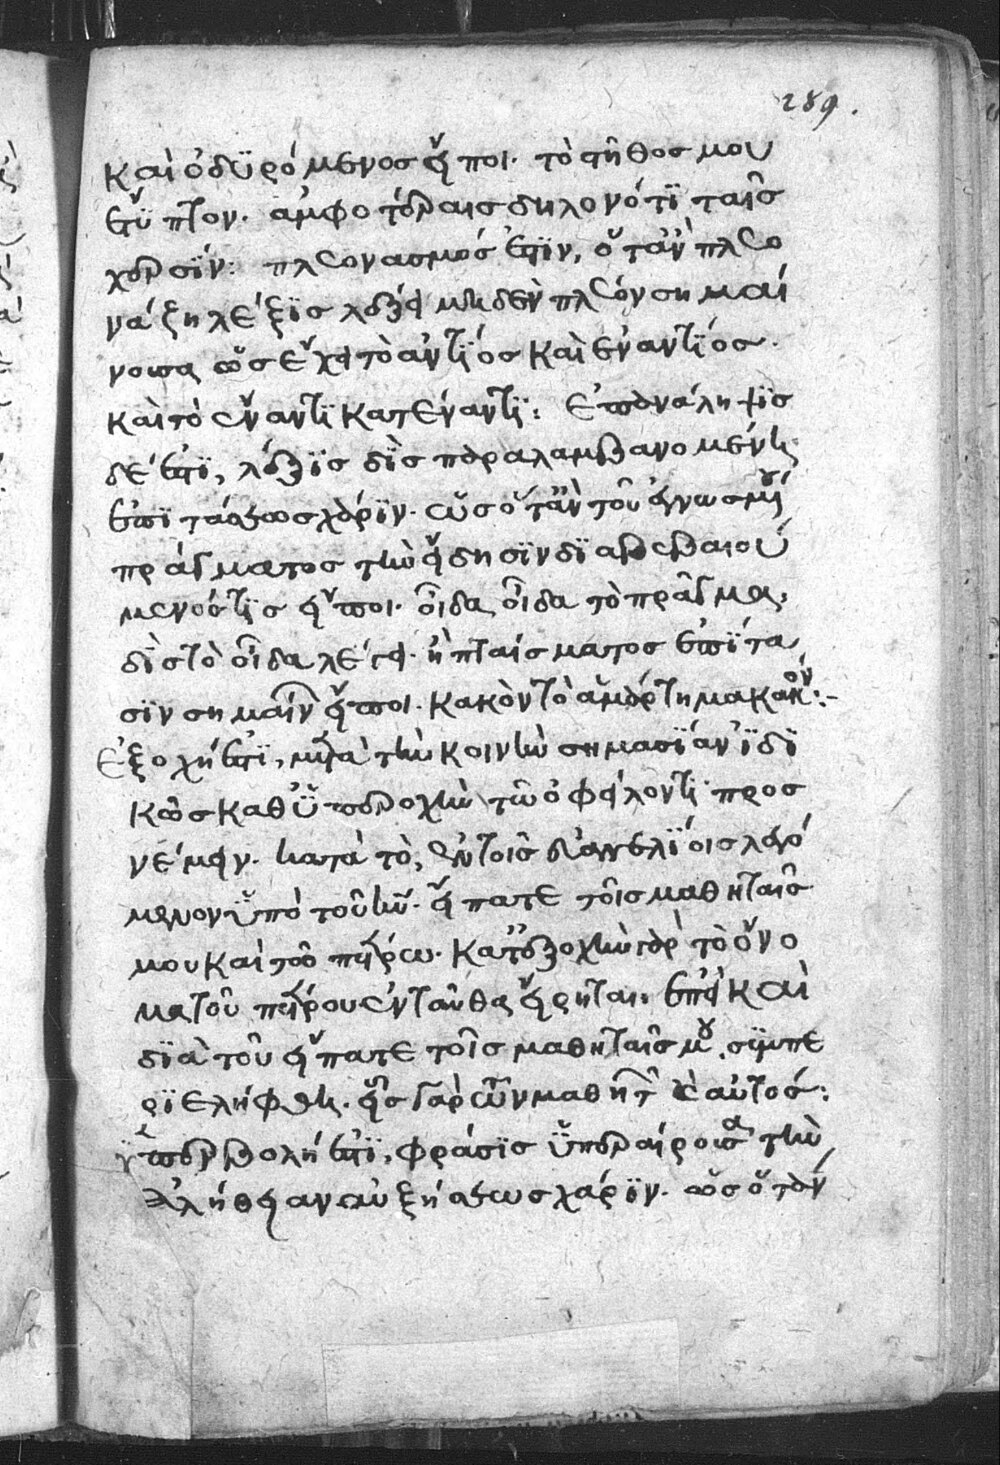 289.
καὶ ὀδϋρόμενος εἴποι· τὸ στῆθος μου
ἔτϋπτον· ἀμφοτέραις δηλονότϊ ταῖς
χερσΐν: πλεονασμός ἐστϊν, ὅταν πλεο
νάζη λέξϊς λέξει μηδὲν πλέον σημαί
νουσα ὡς ἔχει τὸ ἀντΐος καὶ ἐναντΐος·
καὶ τὸ ἔναντϊ κατέναντϊ: ἐπανάληψϊς
δέ ἐστϊ, λέξϊς δὶς παραλαμβανομένη
ἐπϊτάσεως χάρϊν· ὡς ὅταν τοῦ ἐγνωσμένου
πράγματος τὴν εἴδησϊν δϊαβεβαιού
μενός τϊς εἴποι· οἶδα οἶδα τὸ πρᾶγμα,
δὶς τὸ οἶδα λέγει· ἢ πταίσματος ἐπΐτα
σϊν σημαίνων εἴποι· κακὸν τὸ ἁμάρτημα κακόν:-
Ἐξοχή ἐστϊ, μετὰ τὴν κοινὴν σημασΐαν ἰδϊ
κῶς καθ' ὑπεροχὴν τῶ ὀφείλοντϊ προς
νέμειν· κατὰ τὸ, ἐν τοῖς εὐαγγελΐοις λεγό
μενον ὑπὸ τοῦ ἰῦ· εἴπατε τοῖς μαθηταῖς
μου καὶ τῶ πέτρω· κατ' ἐξοχὴν γὰρ τὸ ὄνο
μα τοῦ πέτρου ἐνταῦθα εἴρηται· ἐπεὶ καὶ
δϊὰ τοῦ εἴπατε τοῖς μαθηταῖς μου, σϋμπε
ρϊελήφθη· εἷς γὰρ ὢν μαθητ καὶ αὐτός:
ὑπερβολή ἐστϊ, φράσϊς ὑπεραίρουσα τὴν
ἀλήθειαν αὐξήσεως χάρϊν· ὡς ὅταν